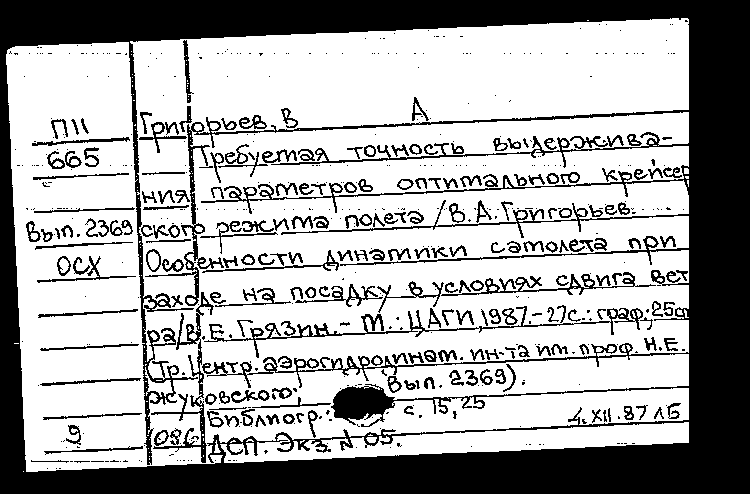 П11 Григорьев, В А
665 Требуемая точность выдержива-
ния параметров оптимального крейсер
Вып. 2369 ского режима полета / В.А. Григорьев.
ОСХ Особенности динамики самолета при
заходе на посадку в условиях сдвига вет
ра / В. Е. Грязин. - М.: ЦАГИ, 1987. - 27с.: граф; 25см
(Тр. Центр. аэрогидродинам. ин-та им. проф. Н.Е.
Жуковского; Вып. 2369).
Библиогр.: с. 15, 25
4.XII.87 ЛБ
9 (086 ДСП. Экз. N 05.